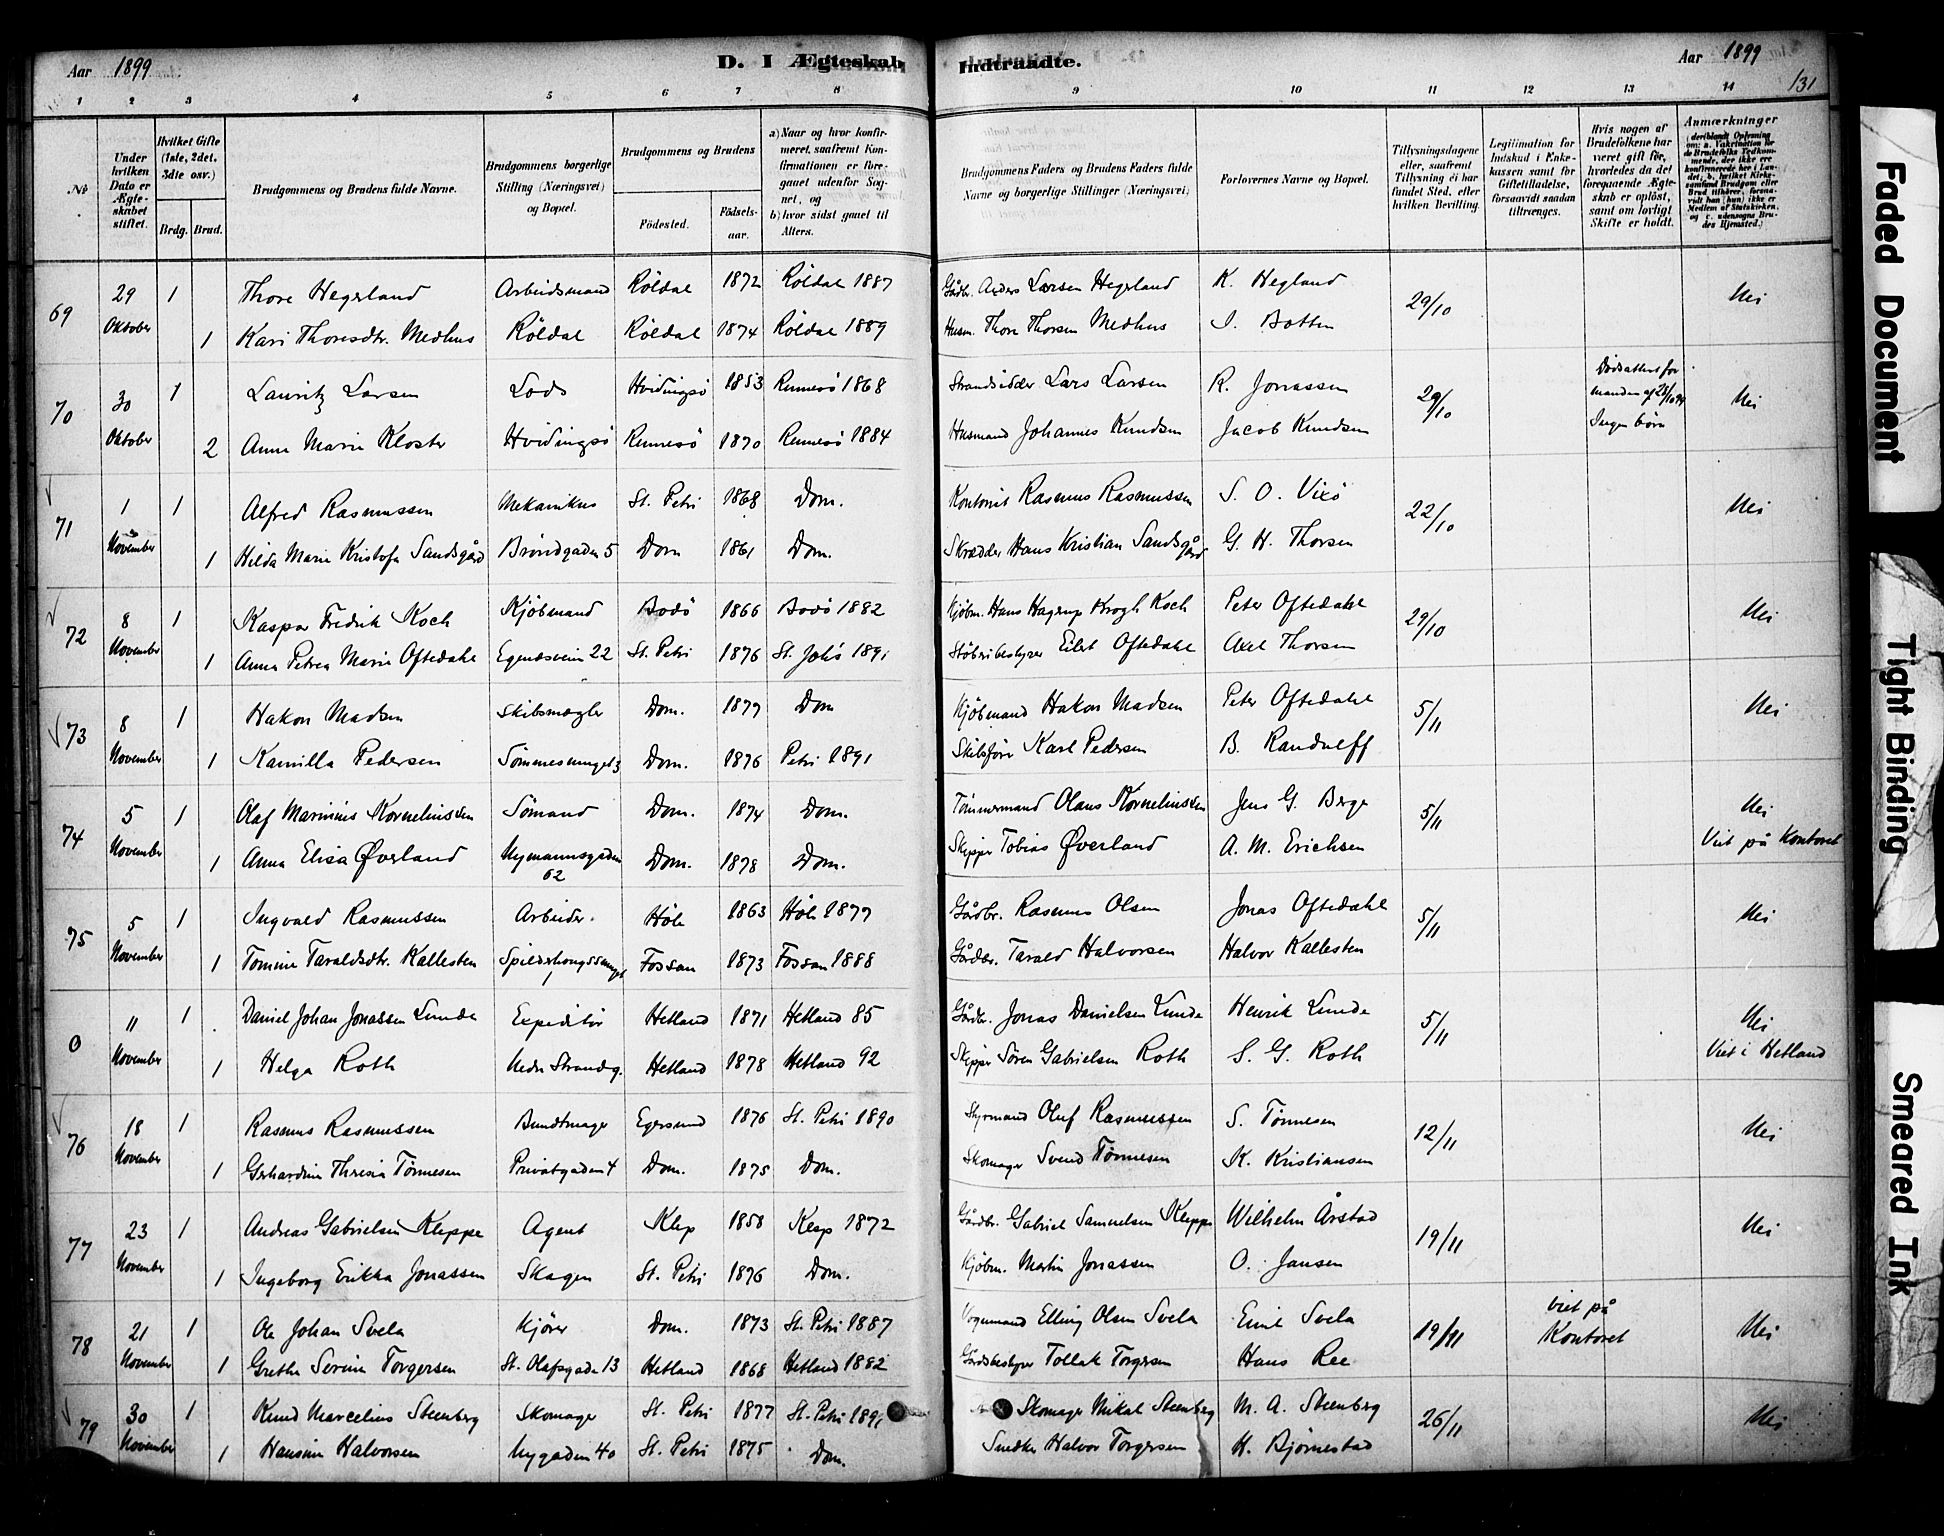 Aar 1899
D. I Ægteskab Indtraadte.
Aar 1899
131
1 2 3 4 5 6 7 8 9 10 11 12 13 14
No
Under hvilken Dato er Ægteskabet stiftet.
Hvilket Gifte (1ste, 2det, 3die osv.)
Brdg. Brud.
Brudgommens og Brudens fulde Navne.
Brudgommens borgerlige Stilling (Næringsvei) og Bopæl.
Brudgommens og Brudens
Födested.
Födselsaar.
a) Naar og hvor konfirmeret, saafremt Konfirmationen er foregaaet udenfor Sognet, og
b) hvor sidst gaaet til Alters.
Brudgommens Faders og Brudens Faders fulde Navne og borgerlige Stillinger (Næringsvei)
Forlovernes Navne og Bopæl.
Tillysningsdagene eller, saafremt Tillysning ei har fundet Sted, efter hvilken Bevilling.
Legitimation for Indskud i Enkekassen samt for Giftetilladelse, forsaavidt saadan tiltrænges.
Hvis nogen af Brudefolkene har været gift før, hvorledes da det foregaaende Ægteskab er opløst, samt om lovligt Skifte er holdt.
Anmærkninger
69 29 Oktober 1 Thore Hegerland Arbeidsmand Röldal 1872 Röldal 1887 Gårdbr. Anders Larsen Hegerland K. Hegland 29/10 Nei
1 Kari Thoresdtr. Medhus Röldal Röldal 1874 Röldal 1889 Husm. Thore Thorsen Medhus J. Botten
70 30 Oktober 1 Lauritz Larsen Lods Hvidingsö 1853 Rennesö 1868 Strandsidder Lars Larsen R. Jonassen 29/10 Dødsattest for manden af Ingen børn Nei
2 Anne Marie Kloster Hvidingsö Rennesö 1870 Rennesö 1884 Husmand Johannes Knudsen Jacob Knudsen
71 1 November 1 Alfred Rasmussen Mekanikus St. Petri 1868 Dom. Kontorist Rasmus Rasmussen S. O. Vixö 22/10 Nei
1 Hilda Marie Kristofa Sandsgård Bröndgaden 5 Dom 1861 Dom. Skrædder Hans Kristian Sandsgård G. H. Thorsen
72 8 November 1 Kaspar Fredrik Koch Kjöbmand Bodö 1866 Bodö 1882 Kjöbm. Hans Hagerup Krogh Koch Peter Oftedahl 29/10 Nei
1 Anna Petrea Marie Oftedahl Egenæsvein 22 St. Petri 1876 St. Johs 1891 Støberibestyrer Eilert Oftedahl Axel Thorsen
73 8 November 1 Hakon Madsen Skibsmægler Dom. 1879 Dom Kjöbmand Hakon Madsen Peter Oftedahl 5/11 Nei
1 Kamilla Pedersen Sömmesmuget 3 Dom. 1876 Petri 1891 Skibsförer Karl Pedersen B. Randulff
74 5 November 1 Olaf Marinius Kornelinssen Sömand Dom. 1874 Dom. Tömmermand Olaus Kornelinssen Jens G. Berge 5/11 Nei
1 Anna Elisa Øverland Nymannsgaden 62 Dom. 1878 Dom. Skipper Tobias Øverland A. M. Erichsen Viet på Kontoret
75 5 November 1 Ingvald Rasmussen Arbeider. Höle 1863 Höle 1877 Gårdbr. Rasmus Olsen Jonas Oftedahl 5/11 Nei
1 Tomine Taraldsdtr. Kallesten Fossan 1873 Fossan 1888 Gårdbr. Tarald Halvorsen Halvor Kallesten
0 11 November 1 Daniel Johan Jonassen Lunde Expeditör Hetland 1871 Hetland 85 Gårdbr. Jonas Danielsen Lunde Henrik Lunde 5/11 Nei
1 Helga Roth Nedre Strandg. Hetland 1878 Hetland 92 Skipper Sören Gabrielsen Roth S. G. Roth Viet i Hetland
76 18 November 1 Rasmus Rasmussen Bundtmager Egersund 1876 St. Petri 1890 Styrmand Oluf Rasmussen S. Tönnesen 12/11 Nei
1 Gerhardine Thresia Tönnesen Privatgaden 4 Dom. 1875 Dom. Skomager Svend Tönnesen K. Kristiansen
77 23 November 1 Andreas Gabrielsen Kleppe Agent Klep 1858 Klep 1872 Gårdbr. Gabriel Samuelsen Kleppe Wilhelm Årstad 19/11 Nei
1 Ingeborg Erikka Jonassen Skagen St. Petri 1876 Dom. Kjöbm. Martin Jonassen O. Jansen
78 21 November 1 Ole Johan Svela Kjörer Dom. 1873 St. Petri 1887 Vognmand Elling Olsen Svela Emil Svela 19/11 Viet på Kontoret Nei
1 Grethe Serine Torgersen St. Olafsgade 13 Hetland 1868 Hetland 1882 Gårdsbestyrer Tollak Torgersen Hans Ree
79 30 November 1 Knud Marcelius Steenberg Skomager St. Petri 1877 St. Petri 1891 Skomager Mikal Steenberg M. A. Steenberg 26/11 Nei
1 Hansine Halvorsen Nygaden 40 St. Petri 1875 Dom. Snedker Halvor Torgersen H. Bjørnestad
Faded Document
Tight Binding
Smeared Ink